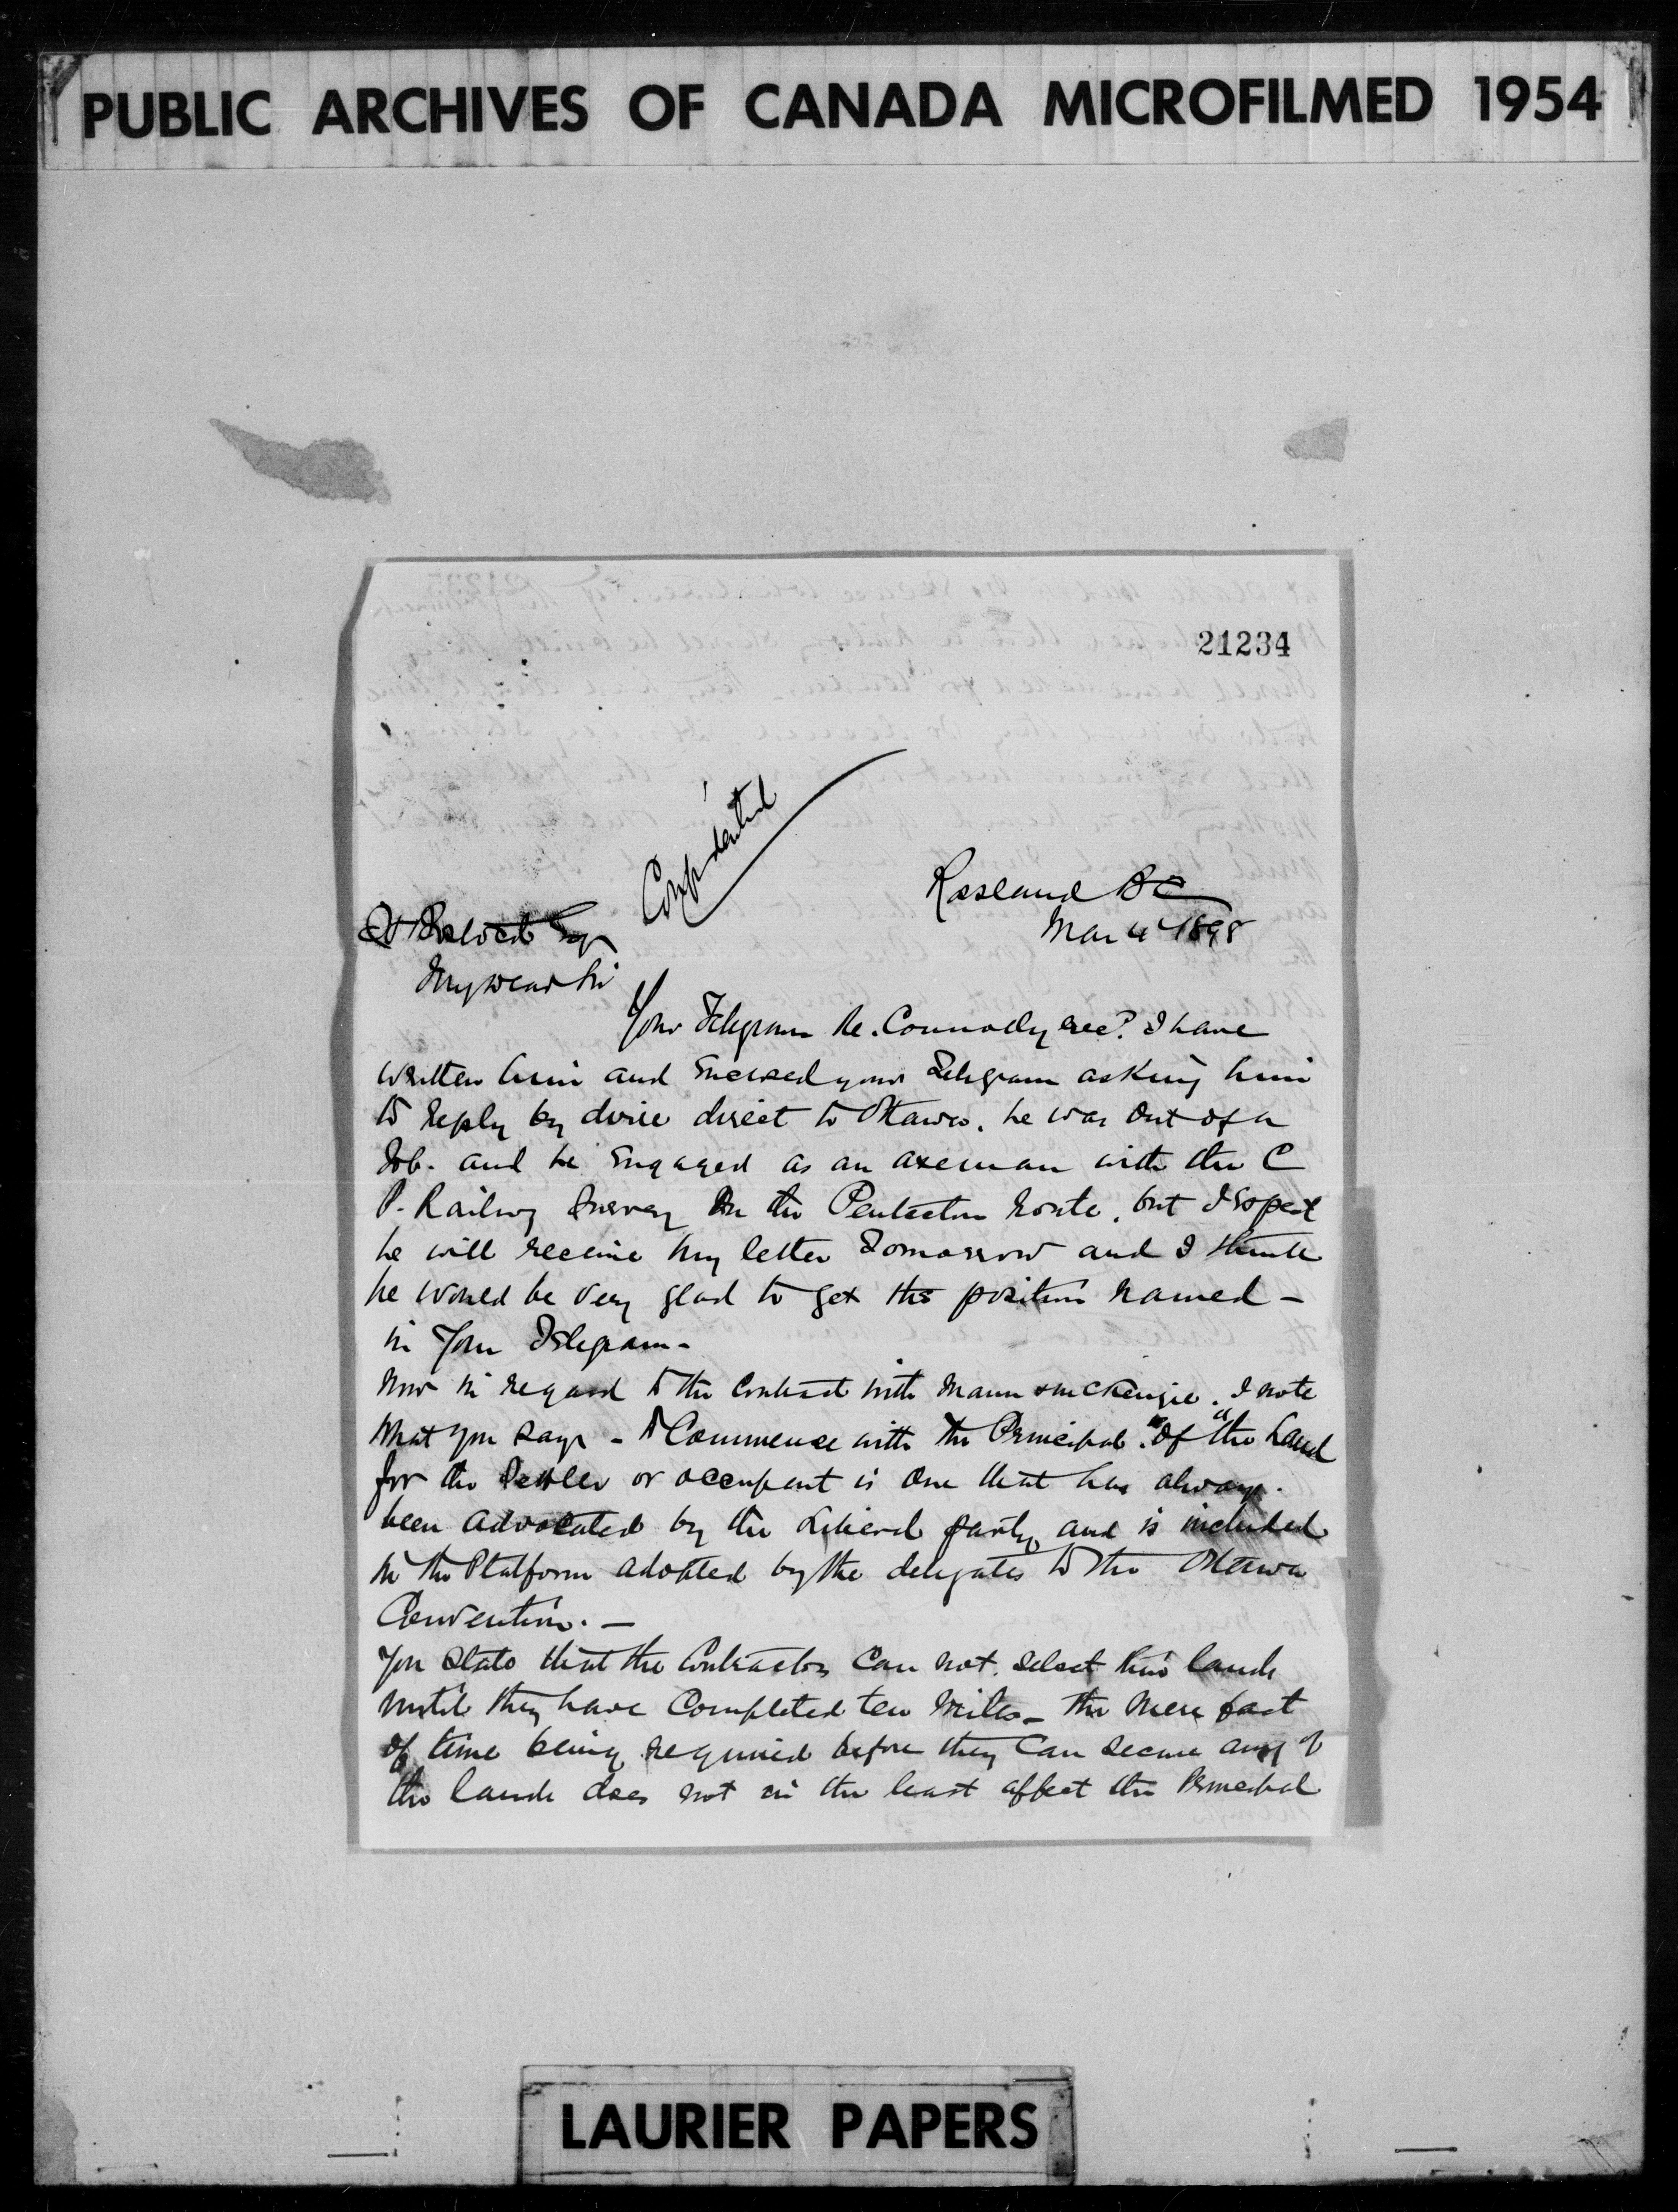 PUBLIC ARCHIVES OF CANADA MICROFILMED 1954
21234
Confidential
Rossland BC
Mar 4 1898
Bostock Esqr
My dear Sir
Your Telegram Re. Connolly recd. I have
written him and enclosed your Telegram asking him
to reply by wire direct to Ottawa. he was out of a
Job. and he engaged as an axeman with the C
P. Railway Survey on the Penticton route, but I expect
he will receive my letter Tomorrow and I think
he would be very glad to get the position named -
in your Telegram -
Now in regard to the Contract with Mann & McKenzie. I note
what you say - to Commence with the Principal. "Of the Land
for the Settler or occupant is one that has always.
been advocated by the Liberal party and is included
in the Platform adopted by the delegates to the Ottawa
Convention. -
You State that the Contractors Can not. select their lands
until they have Completed ten Miles - the mere fact
of time being required before they Can secure any of
the lands does not in the least affect the Principal
LAURIER PAPERS